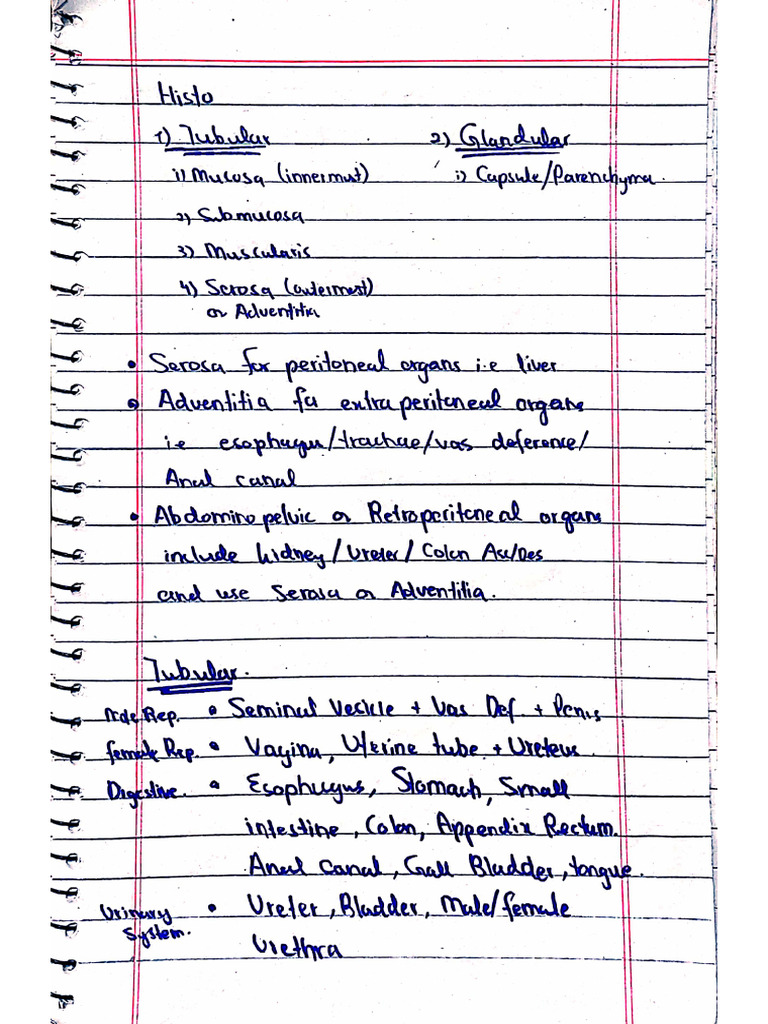 Histo
1) Tubular 2) Glandular
1) Mucosa (innermust) i) Capsule/Parenchyma.
2) Submucosa
3) Muscularis
4) Serosa (outermost)
or Adventitia
• Serosa for peritoneal organs i.e liver
• Adventitia for extraperitoneal organs
i.e esophagus/trachae/vas deference/
Anal canal
• Abdominopelvic or Retroperitoneal organs
include kidney/Ureter/Colon Asc/Des
and use Serosa or Adventitia.
Tubular.
Male Rep. • Seminal Vesicle + Vas Def. + Penis
female Rep. • Vagina, Uterine tube + Ureteus.
Digestive. • Esophugus, Stomach, Small
intestine, Colon, Appendix Rectum.
Anal canal, Gall Bladder, tongue.
Urinary • Ureter, Bladder, Male/female
System.
Urethra